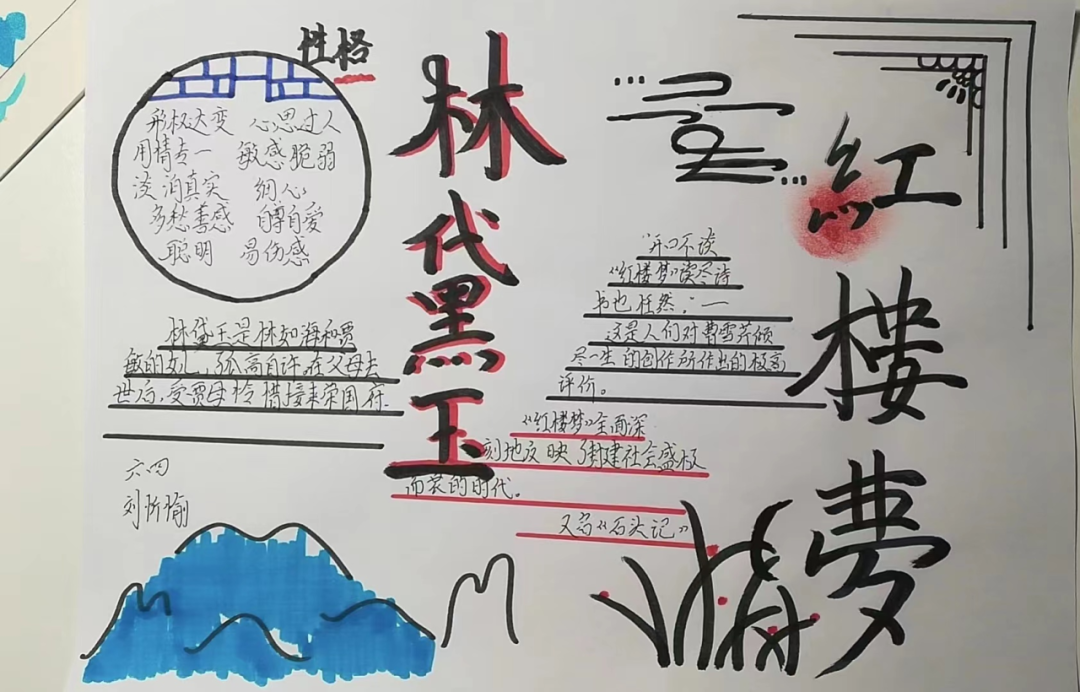 性格
形权达变 心思过人
用情专一 敏感脆弱
淡泊真实 细心
多愁善感 自尊自爱
聪明 易伤感
林黛玉是林如海和贾
敏的女儿，孤高自许，在父母去
世后，受贾母怜惜接来荣国府.
六四
刘忻愉
林
黛
玉
紅
樓
夢
"开口不谈
《红楼梦》读尽诗
书也枉然."一
这是人们对曹雪芹倾
尽一生的创作所作出的极高
评价。
《红楼梦》全面深
刻地反映了封建社会盛极
而衰的时代。
又名《石头记》